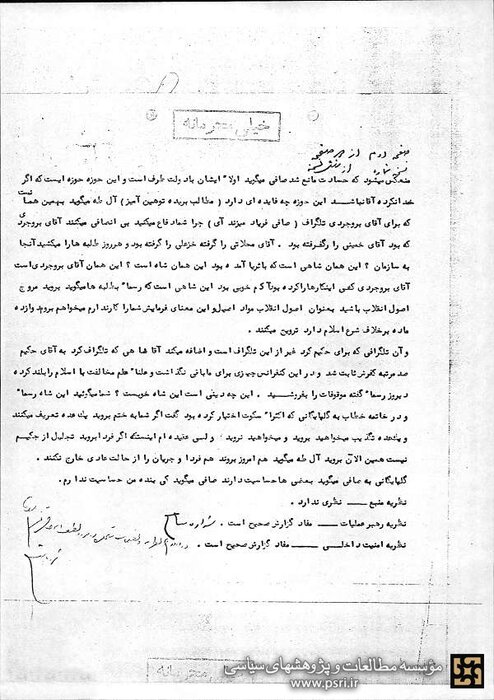 خیلی محرمانه
صفحه دوم از
منعکس میشود که حسادت مانع شد صافی میگوید اولا" ایشان باد ولت طرف است و این حوزه حوزه ایست که اگر
خد انکرده آقا نباشند این حوزه چه فایده ای دارد ( مطالب بریده توهین آمیز ) آل طه میگوید بهمین هما نست
که برای آقای بروجردی تلگراف ( صافی فریاد میزند آی ) چرا شمادفاع میکنید بی انصافی میکنند آقای بروجردی
که بود آقای خمینی را گرفته بود . آقای محلاتی را گرفته خزعلی را گرفته بود و هرروز طلبه هارا میکشید آنجا
به سازمان ؟ این همان شاهی است که باثریا آمد ه بود این همان شاه است ؟ این همان آقای بروجردی است
آقای بروجردی کفی اینکارهاراکرده بود آدم خوبی بود این شاهی است که رسما" بطلبه هامیگوید بروید مروج
اصول انقلاب باشید بعنوان اصول انقلاب مواد اصیل و این معنای فرمایش شما را کارند ارم میخواهم بروم دوازده
ماده برخلاف شرع اسلام دارد ترویج میکنند .
و آن تلگرافی که برای حکیم کرد غیر از این تلگراف است و اضافه میکند آقا شا هی که تلگراف کرد به آقای حکیم
صد مرتبه کفرش ثابت شد و در این کنفرانس چیزی برای مابانی نگذ اشت و علنا" علم مخالفت با اسلام را بلند کرده
دیروز رسما" گفته موقوفات را بفروشید . این چه دینی است این شاه خوبست ؟ شما میگوئید این شاه رسما"
و در خاتمه خطاب به گلپایگانی که اکثرا" سکوت اختیار کرده بود گفت اگر شما به ختم بروید یک عده تعریف میکنند
و یکعده تکذ یب میخواهید بروید و میخواهید نروید ؛ ولسی عقیده ام اینستکه اگر فردا بروید تجلیل از حکیم
نیست همین الآن بروید آل طه میگوید هم امروز بروند هم فردا و جریان را از حالت عادی خارج نکنند .
گلپایگانی به صافی میگوید بعضی ها حساسیت دارند صافی میگوید کی بنده من حساسیت ندا رم .
نظریه منبع ــ نظری ندارد .
نظریه رهبر عملیات ــ مفاد گزارش صحیح است .
نظریه امنیت داخلی ــ مفاد گزارش صحیح است .
محرمانه
مؤسسه مطالعات و پژوهشهای سیاسی
www.psri.ir